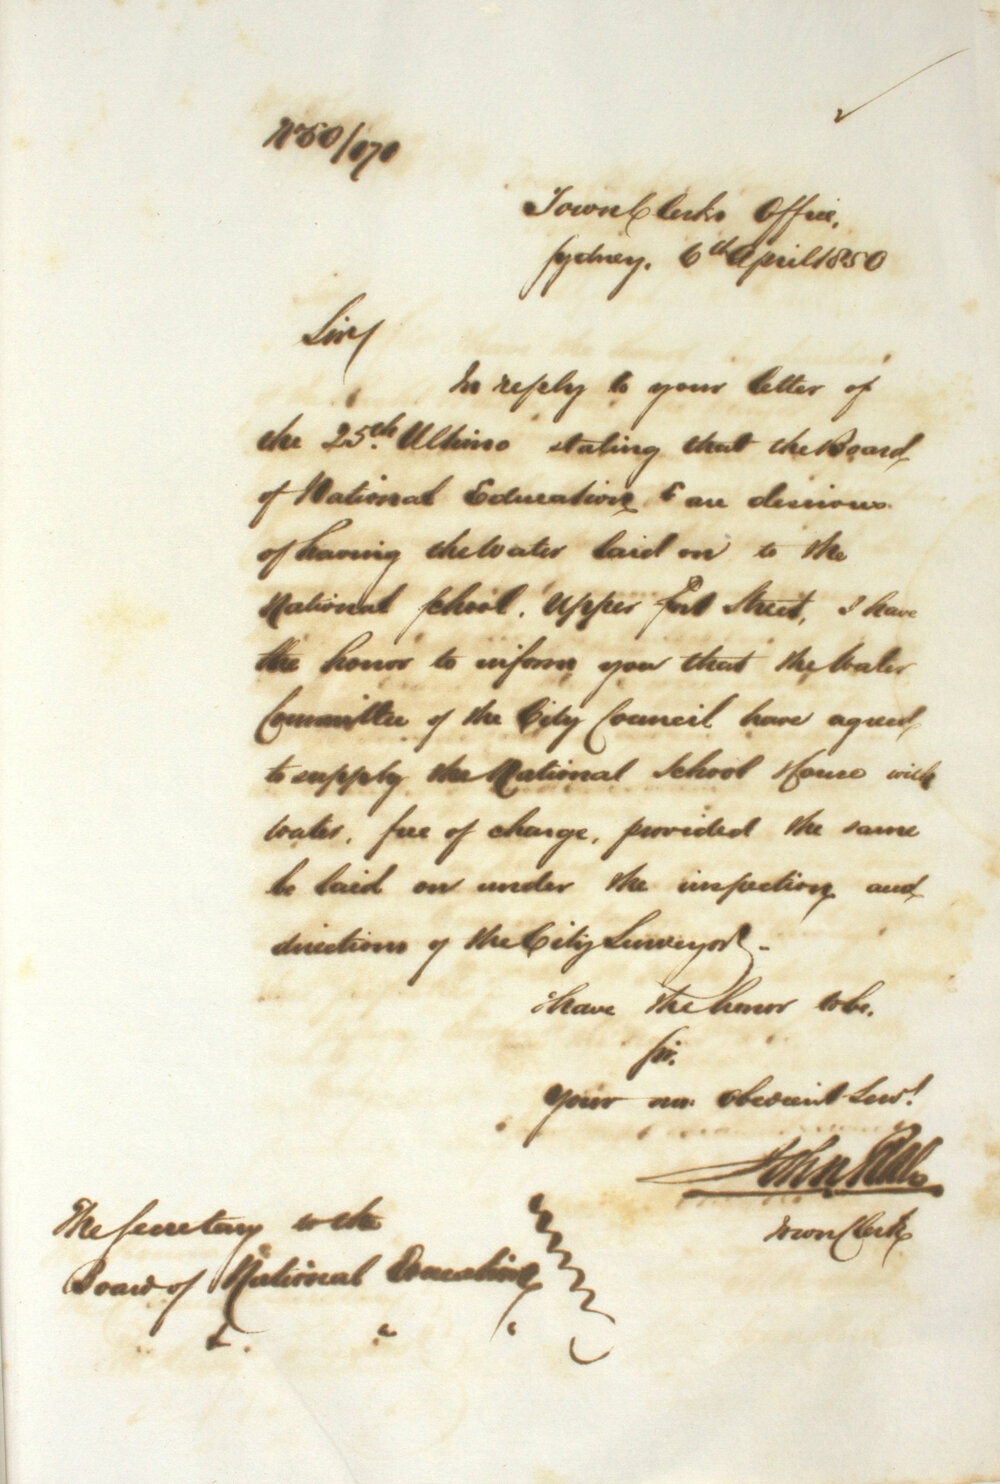 No 50/170
Town Clerks Office,
Sydney. 6th April 1850
Sir/
In reply to your letter of
the 25th. Ultimo stating that the Board
of National Education &c are desirous
of having the Water laid on to the
National School, Upper Fort Street, I have
the honor to inform you that the Water
Committee of the City Council have agreed
to supply the National School House with
Water, free of charge, provided the same
be laid on under the inspection and
directions of the City Surveyor. -
I have the honor to be,
Sir,
Your obedient Servt
John
Town Clerk
The Secretary to the
Board of National Education